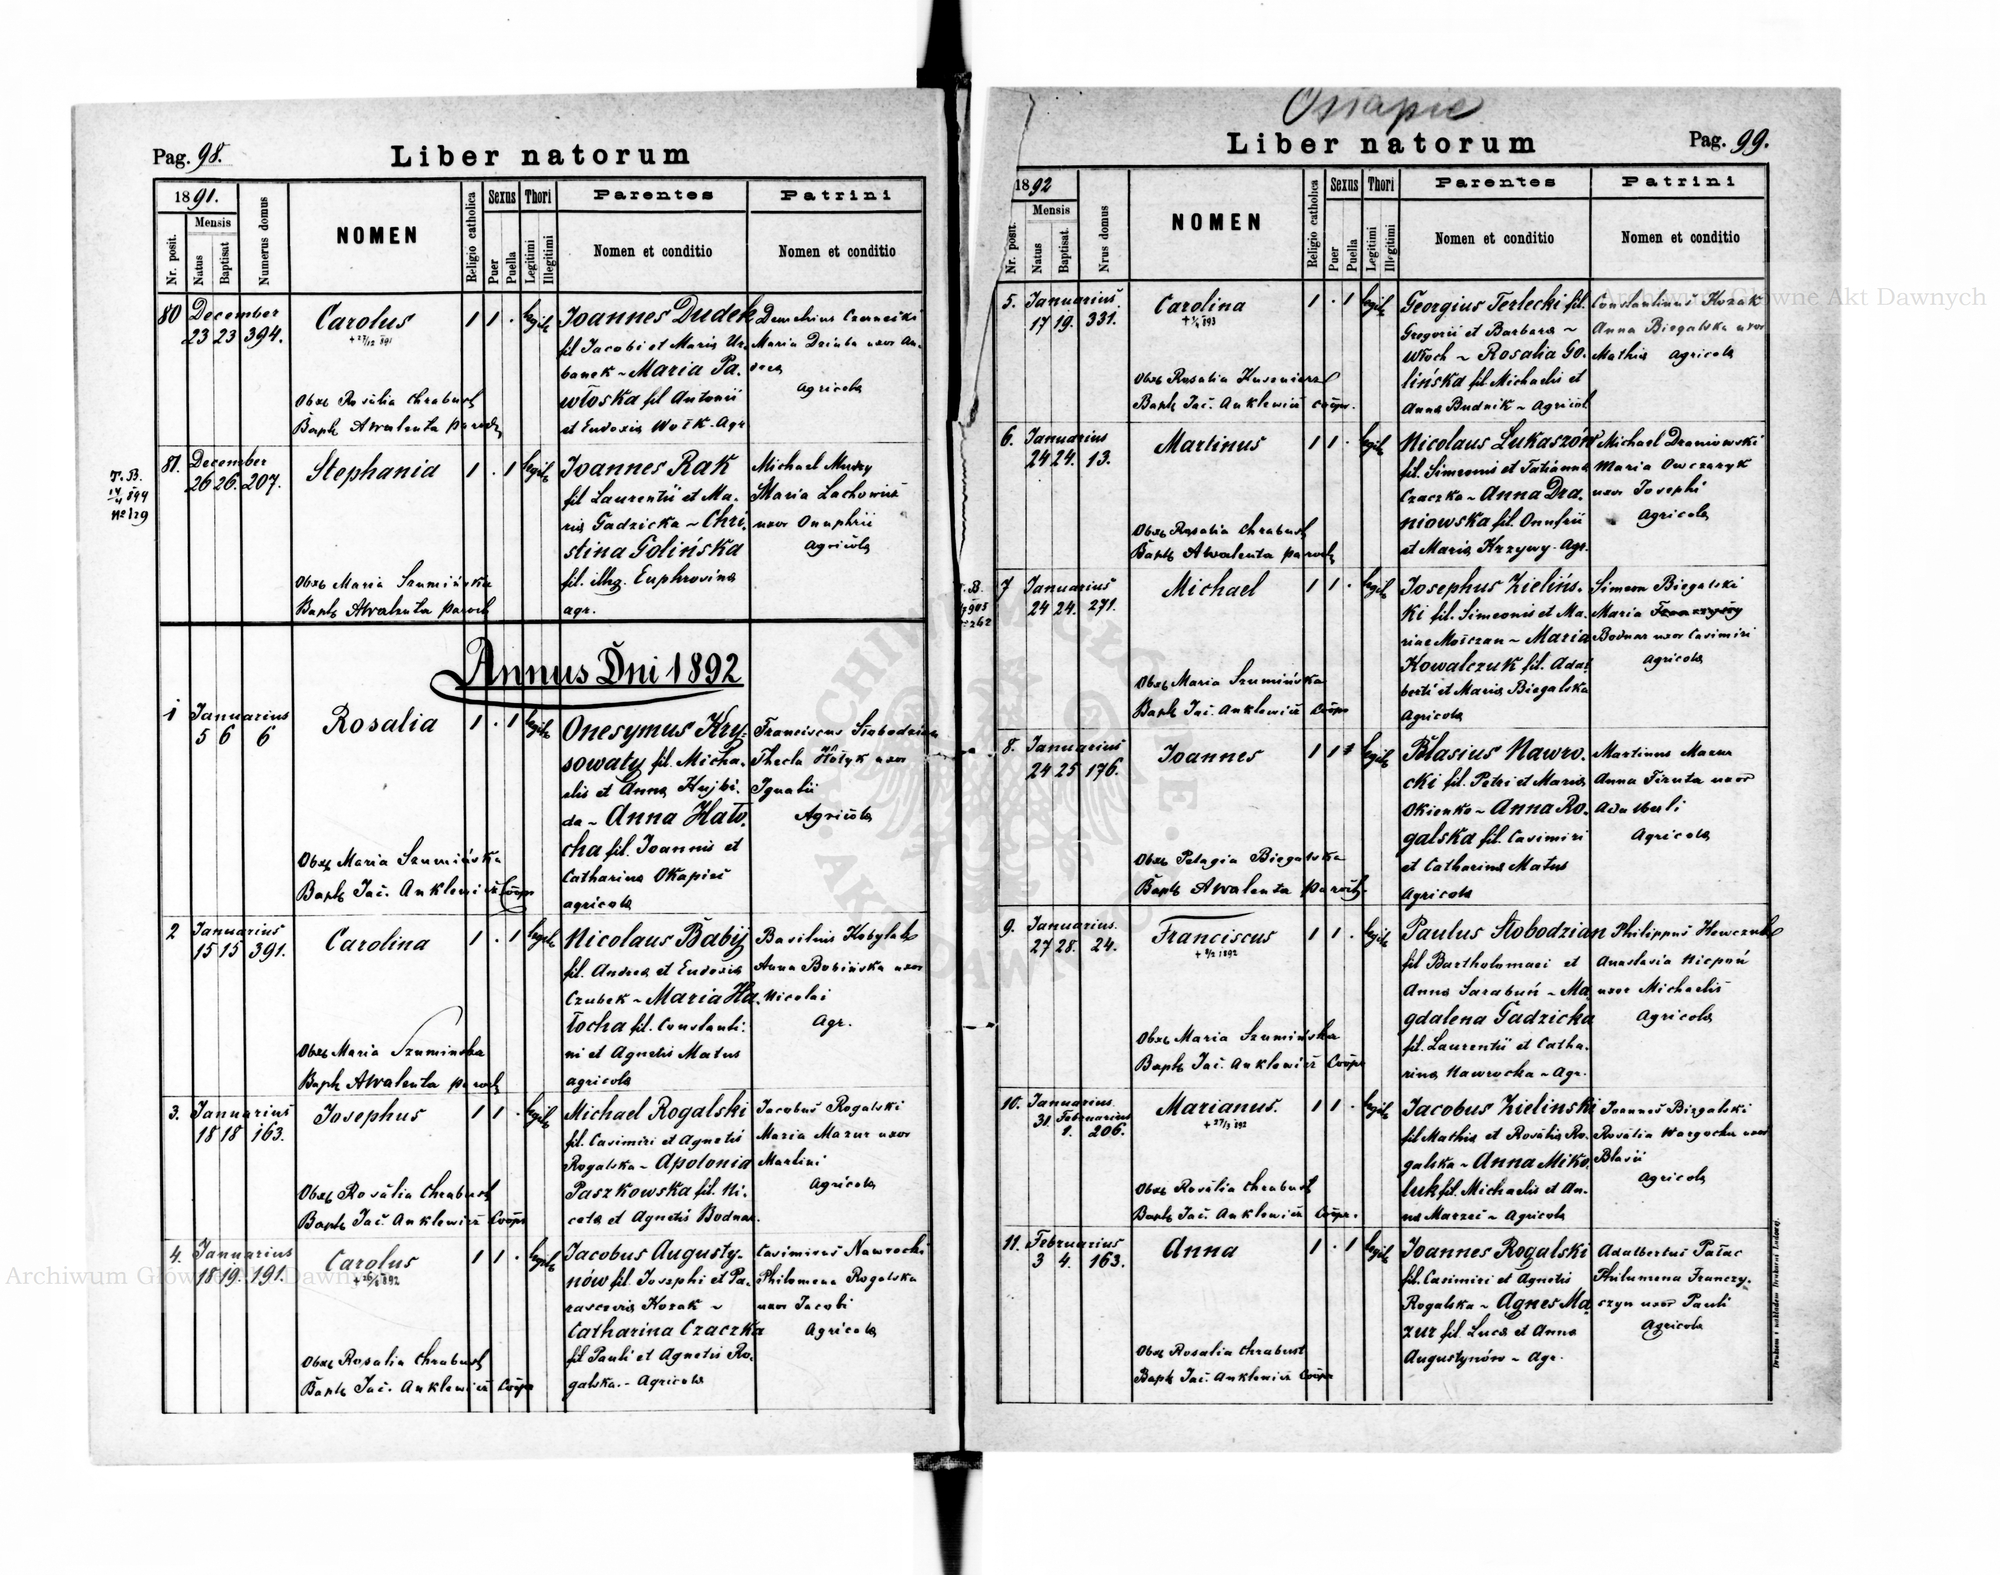 Ossapie
Pag. 98.
Liber natorum
1891.
Nr. posit.
Mensis
Natus
Baptisat
Numerus domus
NOMEN
Religio catholica
Sexus
Puer
Puella
Thori
Legitimi
Illegitimi
Parentes
Nomen et conditio
Patrini
Nomen et conditio
80 December
23 23 394.
Carolus
+ 27/12 891
1 1 . legit
Joannes Dudek
fil Jacobi et Maria Ur-
banek ~ Maria Pa-
włoska fil Antonii
et Eudoxia Wołk. Agr
Demetrius Czernećki
Maria Dziuba uxor An-
drea
Agricola
Obst Rosalia Chrabust
Bapt AWalenta paroch
T. B.
14/4 899
No 129
81. December
26 26. 207.
Stephania
1 . 1 legit
Joannes Rak
fil Laurentii et Ma-
ria Gadzicka ~ Chri-
stina Golińska
fil. illeg. Euphrosina
agr.
Michael Mudzy
Maria Lachowicz
uxor Onuphrii
Agricola
Obst Maria Szumińska
Bapt AWalenta paroch
Annus Dni 1892
1 Januarius
5 6 6
Rosalia
1 . 1 legit
Onesymus Kry-
sowaty fil. Micha-
elis et Anna Hujbi-
da ~ Anna Hało-
cha fil. Joannis et
Catharina Okapiec
agricola
Franciscus Słobodzian
Thecla Hołyk uxor
Ignatii
Agricola
Obst Maria Szumińska
Bapt Jac. Anklewicz Coopr
2 Januarius
15 15 391.
Carolina
1 . 1 legit
Nicolaus Babij
fil. Andrea et Eudoxia
Czubek ~ Maria Ha-
łocha fil. Constanti-
ni et Agnetis Matus
agricola
Basilius Kobylak
Anna Bobińska uxor
Nicolai
Agr.
Obst Maria Szuminska
Bapt AWalenta paroch
3. Januarius
18 18 163.
Josephus
1 1 . legit
Michael Rogalski
fil. Casimiri et Agnetis
Rogalska ~ Apolonia
Paszkowska fil. Ni-
ceta et Agnetis Bodnar.
Jacobus Rogalski
Maria Mazur uxor
Martini
Agricola
Obst Rosalia Chrabust
Bapt Jac. Anklewicz Coopr
4. Januarius
18 19. 191.
Carolus
1 1 . legit
Jacobus Augusty-
nów fil. Josephi et Pa-
rascevia Kozak ~
Catharina Czaczka
fil Pauli et Agnetis Ro-
galska. ~ Agricola
Casimirus Nawrocki
Philomena Rogalska
uxor Jacobi
Agricola
Obst Rosalia Chrabust
Bapt Jac. Anklewicz Coopr
Pag. 99.
Liber natorum
1892
Nr. posit.
Mensis
Natus
Baptisat.
Nrus domus
NOMEN
Religio catholica
Sexus
Puer
Puella
Thori
Legitimi
Illegitimi
Parentes
Nomen et conditio
Patrini
Nomen et conditio
5. Januarius.
17 19. 331.
Carolina
1 . 1 legit
Georgius Terlecki fil.
Gregorii et Barbara ~
Włoch ~ Rosalia Go-
lińska fil. Michaelis et
Anna Budnik ~ Agricol
Constantinus Kozak
Anna Biegalska uxor
Mathia Agricola
Obst Rosalia Kusznierz
Bapt Jac. Anklewicz coopr.
6. Januarius
24 24. 13.
Martinus
1 1 . legit
Nicolaus Łukaszów
fil. Simeonis et Tatianna
Czaczka ~ Anna Dra-
niowska fil. Onufrii
et Maria Krzywy. Agr.
Michael Draniowski
Maria Owczaryk
uxor Josephi
Agricola
Obst Rosalia Chrabust
Bapt AWalenta paroch
7 Januarius
24 24. 271.
Michael
1 1 . legit
Josephus Zielińs-
ki fil. Simeonis et Ma-
riae Mośczan ~ Maria
Kowalczuk fil. Adal-
berti et Maria Biegalska
Agricola
Simeon Biegalski
Maria Franczyszy
Bodnar uxor Casimiri
Agricola
Obst Maria Szumińska
Bapt Jac. Anklewicz Coopr
8. Januarius
24 25 176.
Joannes
1 1 legit
Błasius Nawro-
cki fil. Petri et Maria
Okienko ~ Anna Ro-
galska fil. Casimiri
et Catharina Matus
Agricola
Martinus Mazur
Anna Firuta uxor
Adalberti
Agricola
Obst Pelagia Biegalska
Bapt AWalenta paroch.
9. Januarius.
27 28. 24.
Franciscus
+ 8/2 1892
1 1 . legit
Paulus Słobodzian
fil Bartholomaei et
Anna Sarabuń ~ Ma-
gdalena Gadzicka
fil. Laurentii et Catha-
rina Nawrocka ~ Agr.
Philippus Hewczuk
Anastasia Niepoń
uxor Michaelis
Agricola
Obst Maria Szumińska
Bapt Jac. Anklewicz Coopr
10. Januarius.
31. Februarius
1. 206.
Marianus.
+ 27/3 892
1 1 . legit
Jacobus Zielinski
fil Mathia et Rosalia Ro-
galska ~ Anna Miko-
luk fil. Michaelis et An-
na Marzec ~ Agricola
Joannes Biegalski
Rosalia Wargocka uxor
Blasii
Agricola
Obst Rosalia Chrabust
Bapt Jac. Anklewicz Coopr.
11. Februarius
3 4. 163.
Anna
1 . 1 legit
Joannes Rogalski
fil. Casimiri et Agnetis
Rogalska ~ Agnes Ma-
zur fil. Luca et Anna
Augustynów ~ Agr.
Adalbertus Pałac
Philumena Franczy-
szyn uxor Pauli
Agricola
Obst Rosalia Chrabust
Bapt Jac. Anklewicz Coopr
Drukiem i nakładem Drukarni Ludowej.
Archiwum Główne Akt Dawnych
Archiwum Główne Akt Dawnych
ARCHIWUM GŁÓWNE AKT DAWNYCH